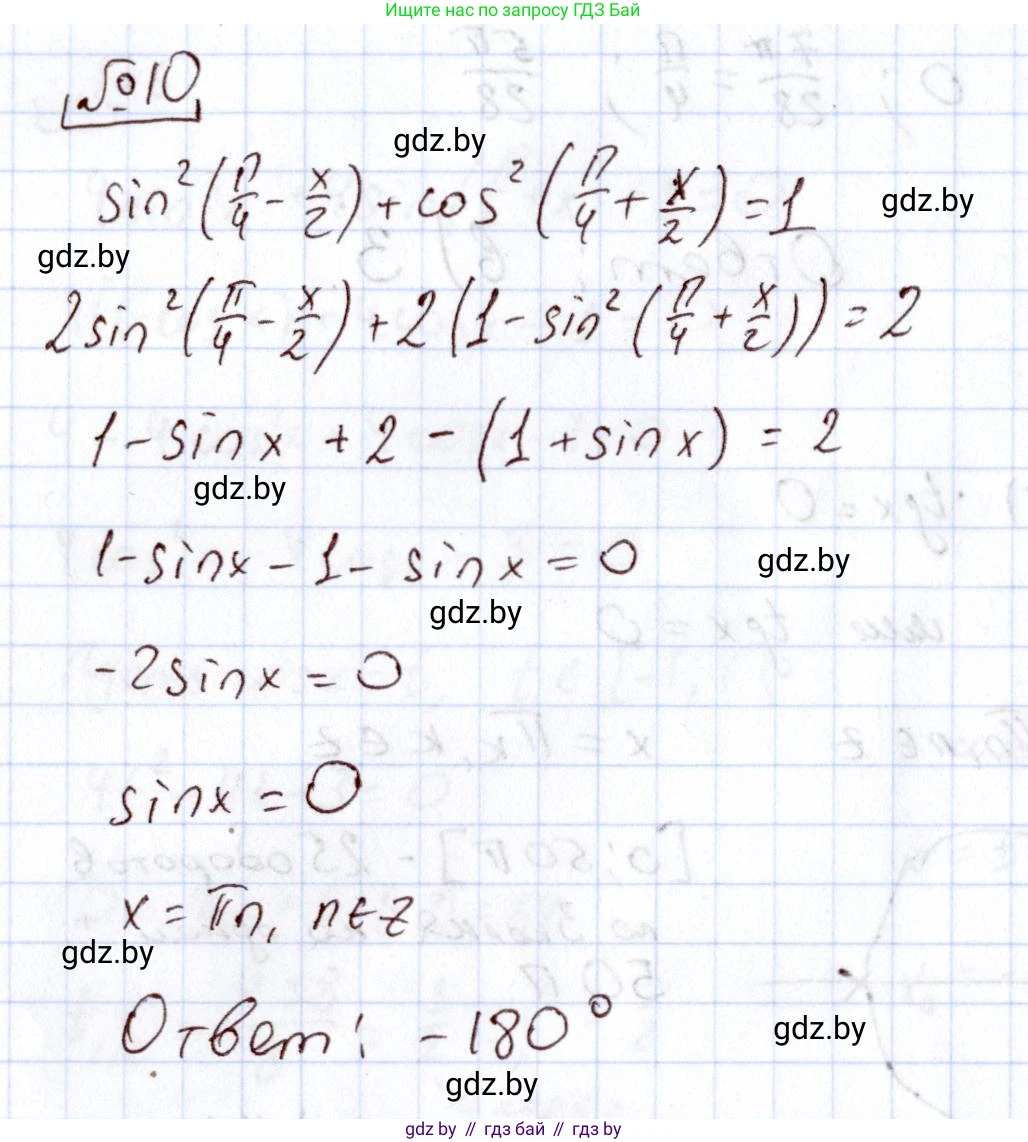 Ищите нас по запросу ГДЗ Бай
№10
gdz.by
sin²(π/4 - x/2) + cos²(π/4 + x/2) = 1
gdz.by
gdz.by
2sin²(π/4 - x/2) + 2(1 - sin²(π/4 + x/2)) = 2
1 - sinx + 2 - (1 + sinx) = 2
gdz.by
1 - sinx - 1 - sinx = 0
gdz.by
gdz.by
-2sinx = 0
sinx = 0
x = πn, n∈z
gdz.by
Ответ: -180°
gdz.by
gdz.by
gdz.by // гдз бай // гдз by